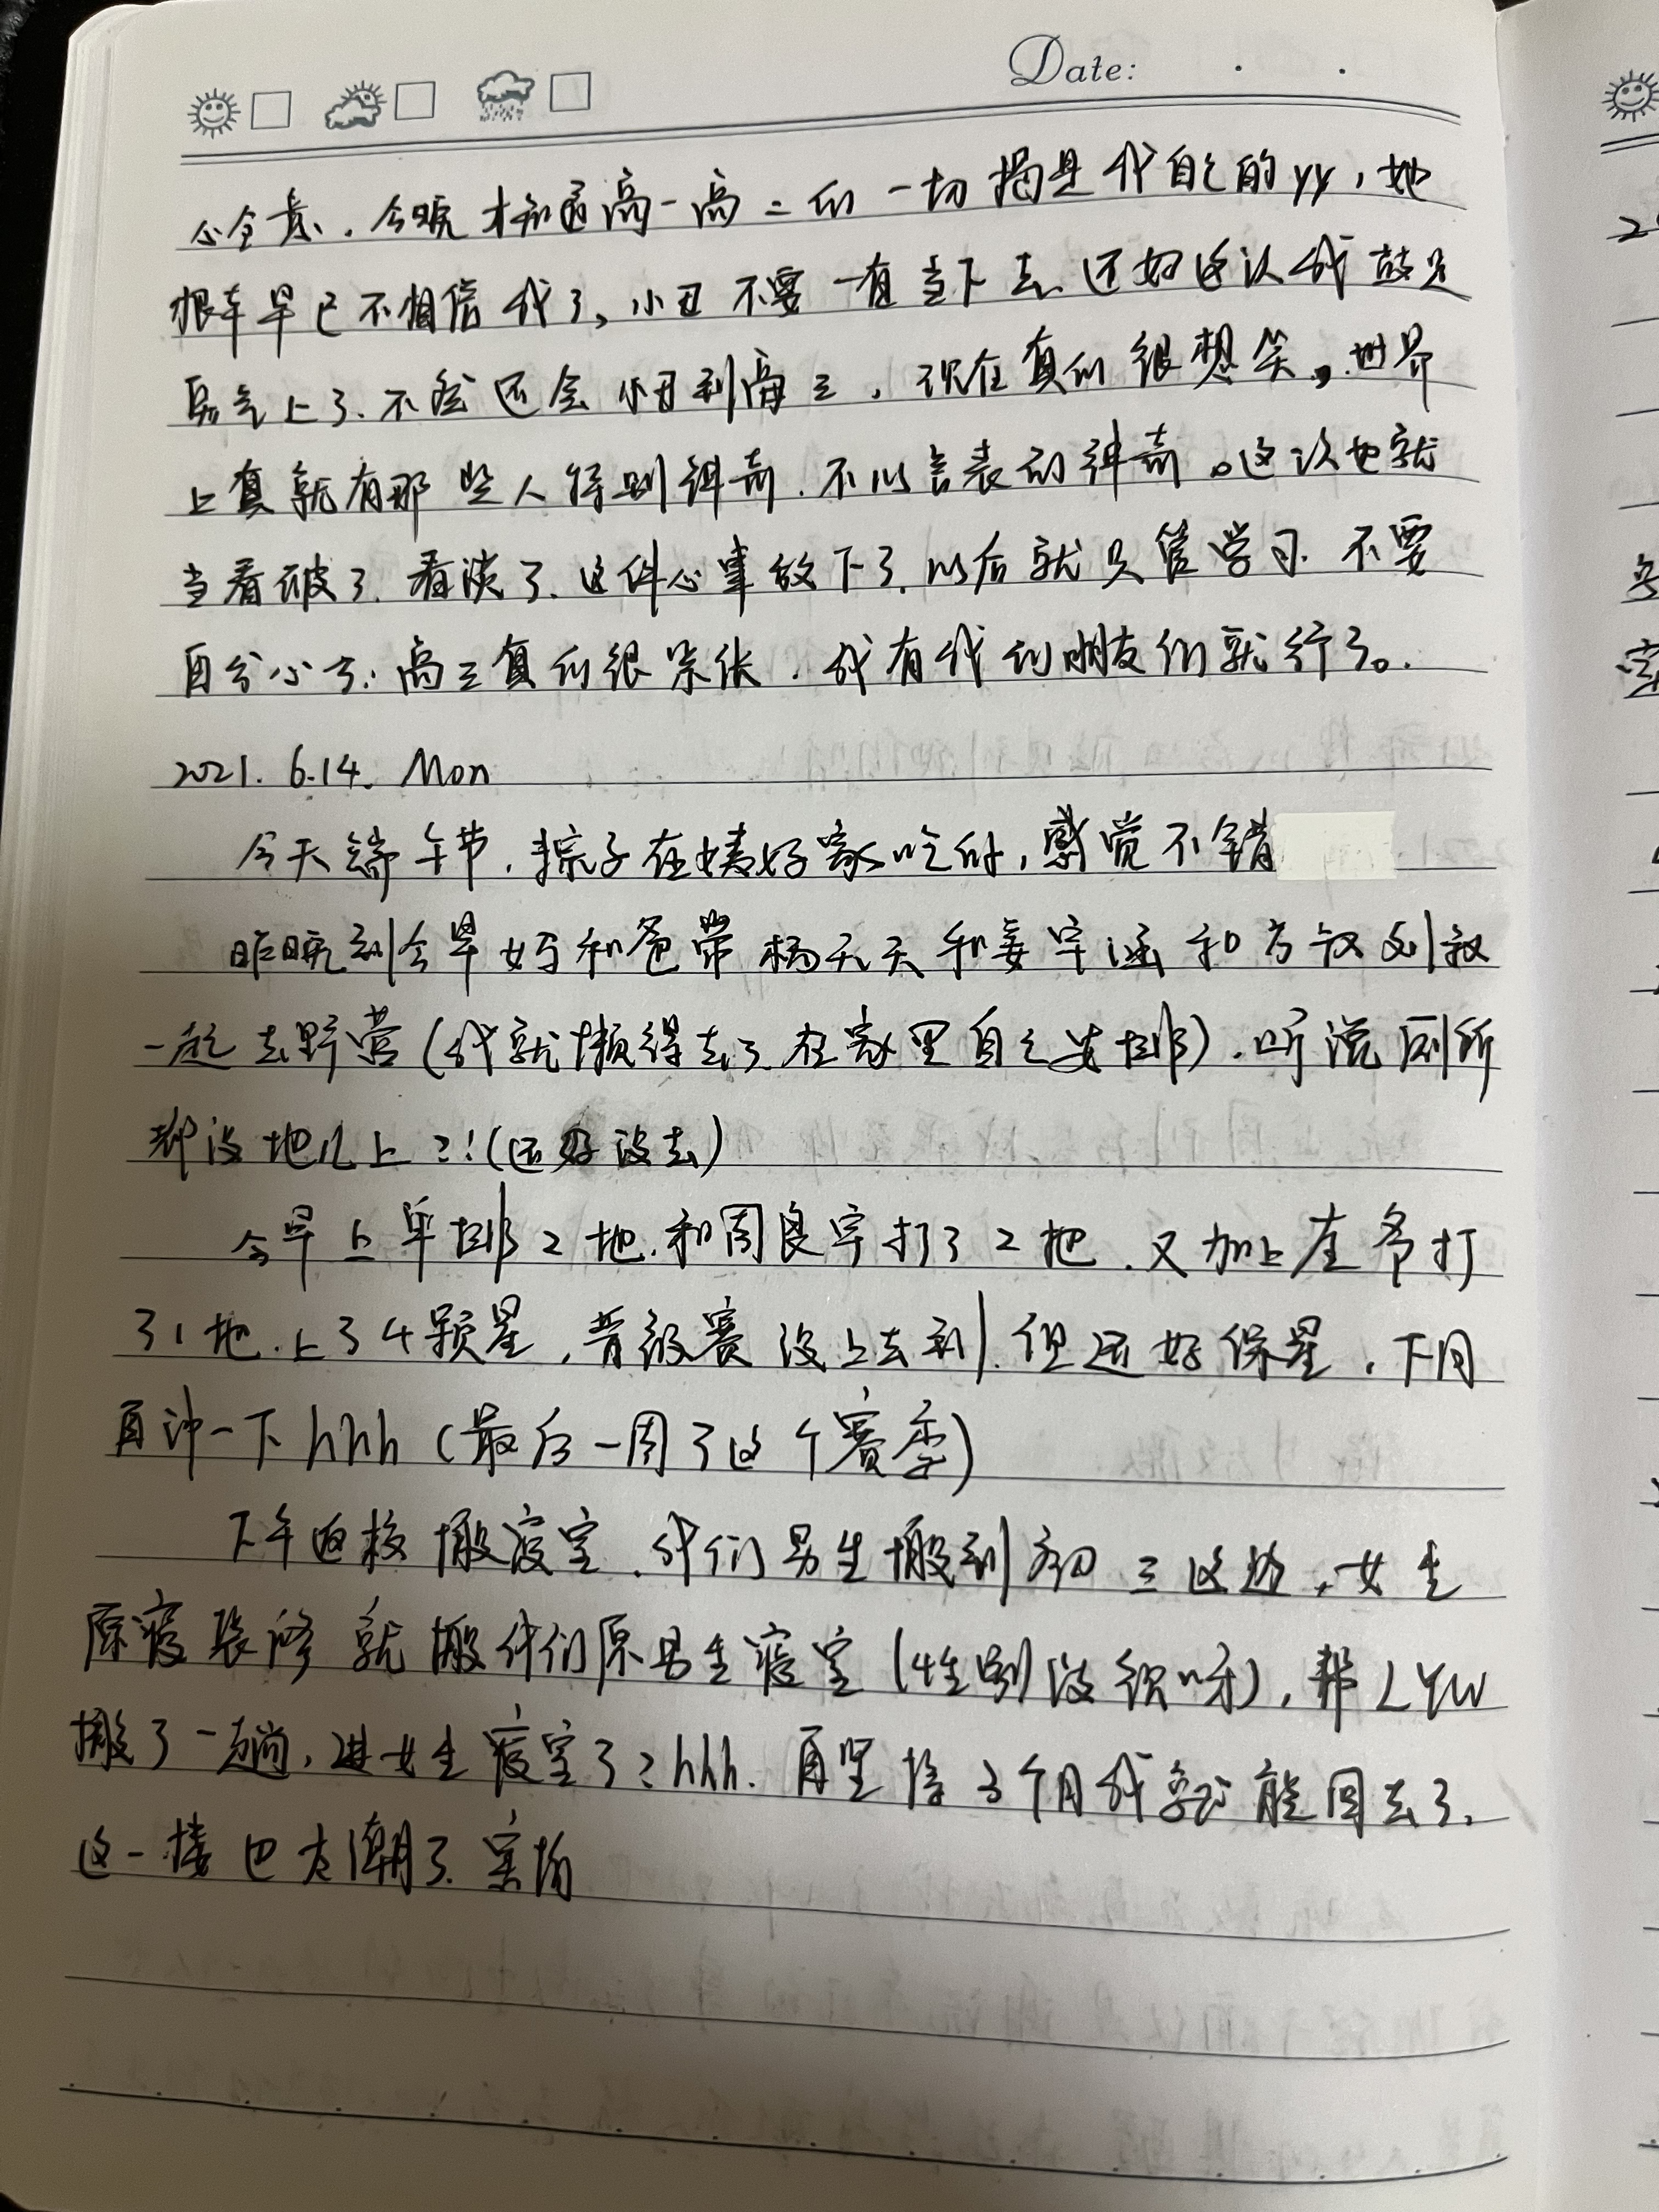 Date:
今晚才知道高一高二的一切揭是我自己的yy，她
根本早已不相信我了，小丑不要一直当下去。还好这次我鼓足
勇气上了.不然还会小丑到高三，现在真的很想笑。世界
上真就有那些人特别神奇.不以言表的神奇。这次也就
当看破了.看淡了.这件心事放下了.以后就只管学习.不要
自分心了.高三真的很紧张.我有我的朋友们就行了。
2021.6.14. Mon
今天端午节，粽子在姨好家吃的，感觉不错
昨晚到今早妈和爸带杨天天和姜宇涵和方叔刘叔
一起去野营(我就懒得去了.在家里自己安排).听说厕所
都没地儿上?!(还好没去)
今早上单排2把.和周良宇打了2把.又加上左爷打
了1把.上了4颗星，晋级赛没上去到.但还好保星，下周
再冲一下hhh(最后一周了这个赛季)
下午返校搬寝室.我们男生搬到初三这边，女生
原寝装修就搬我们原男生寝室(性别没织呀)，帮LYW
搬了一趟，进女生寝室了?hhh.再坚持3个月我就能回去了.
这一楼也太潮了.害怕